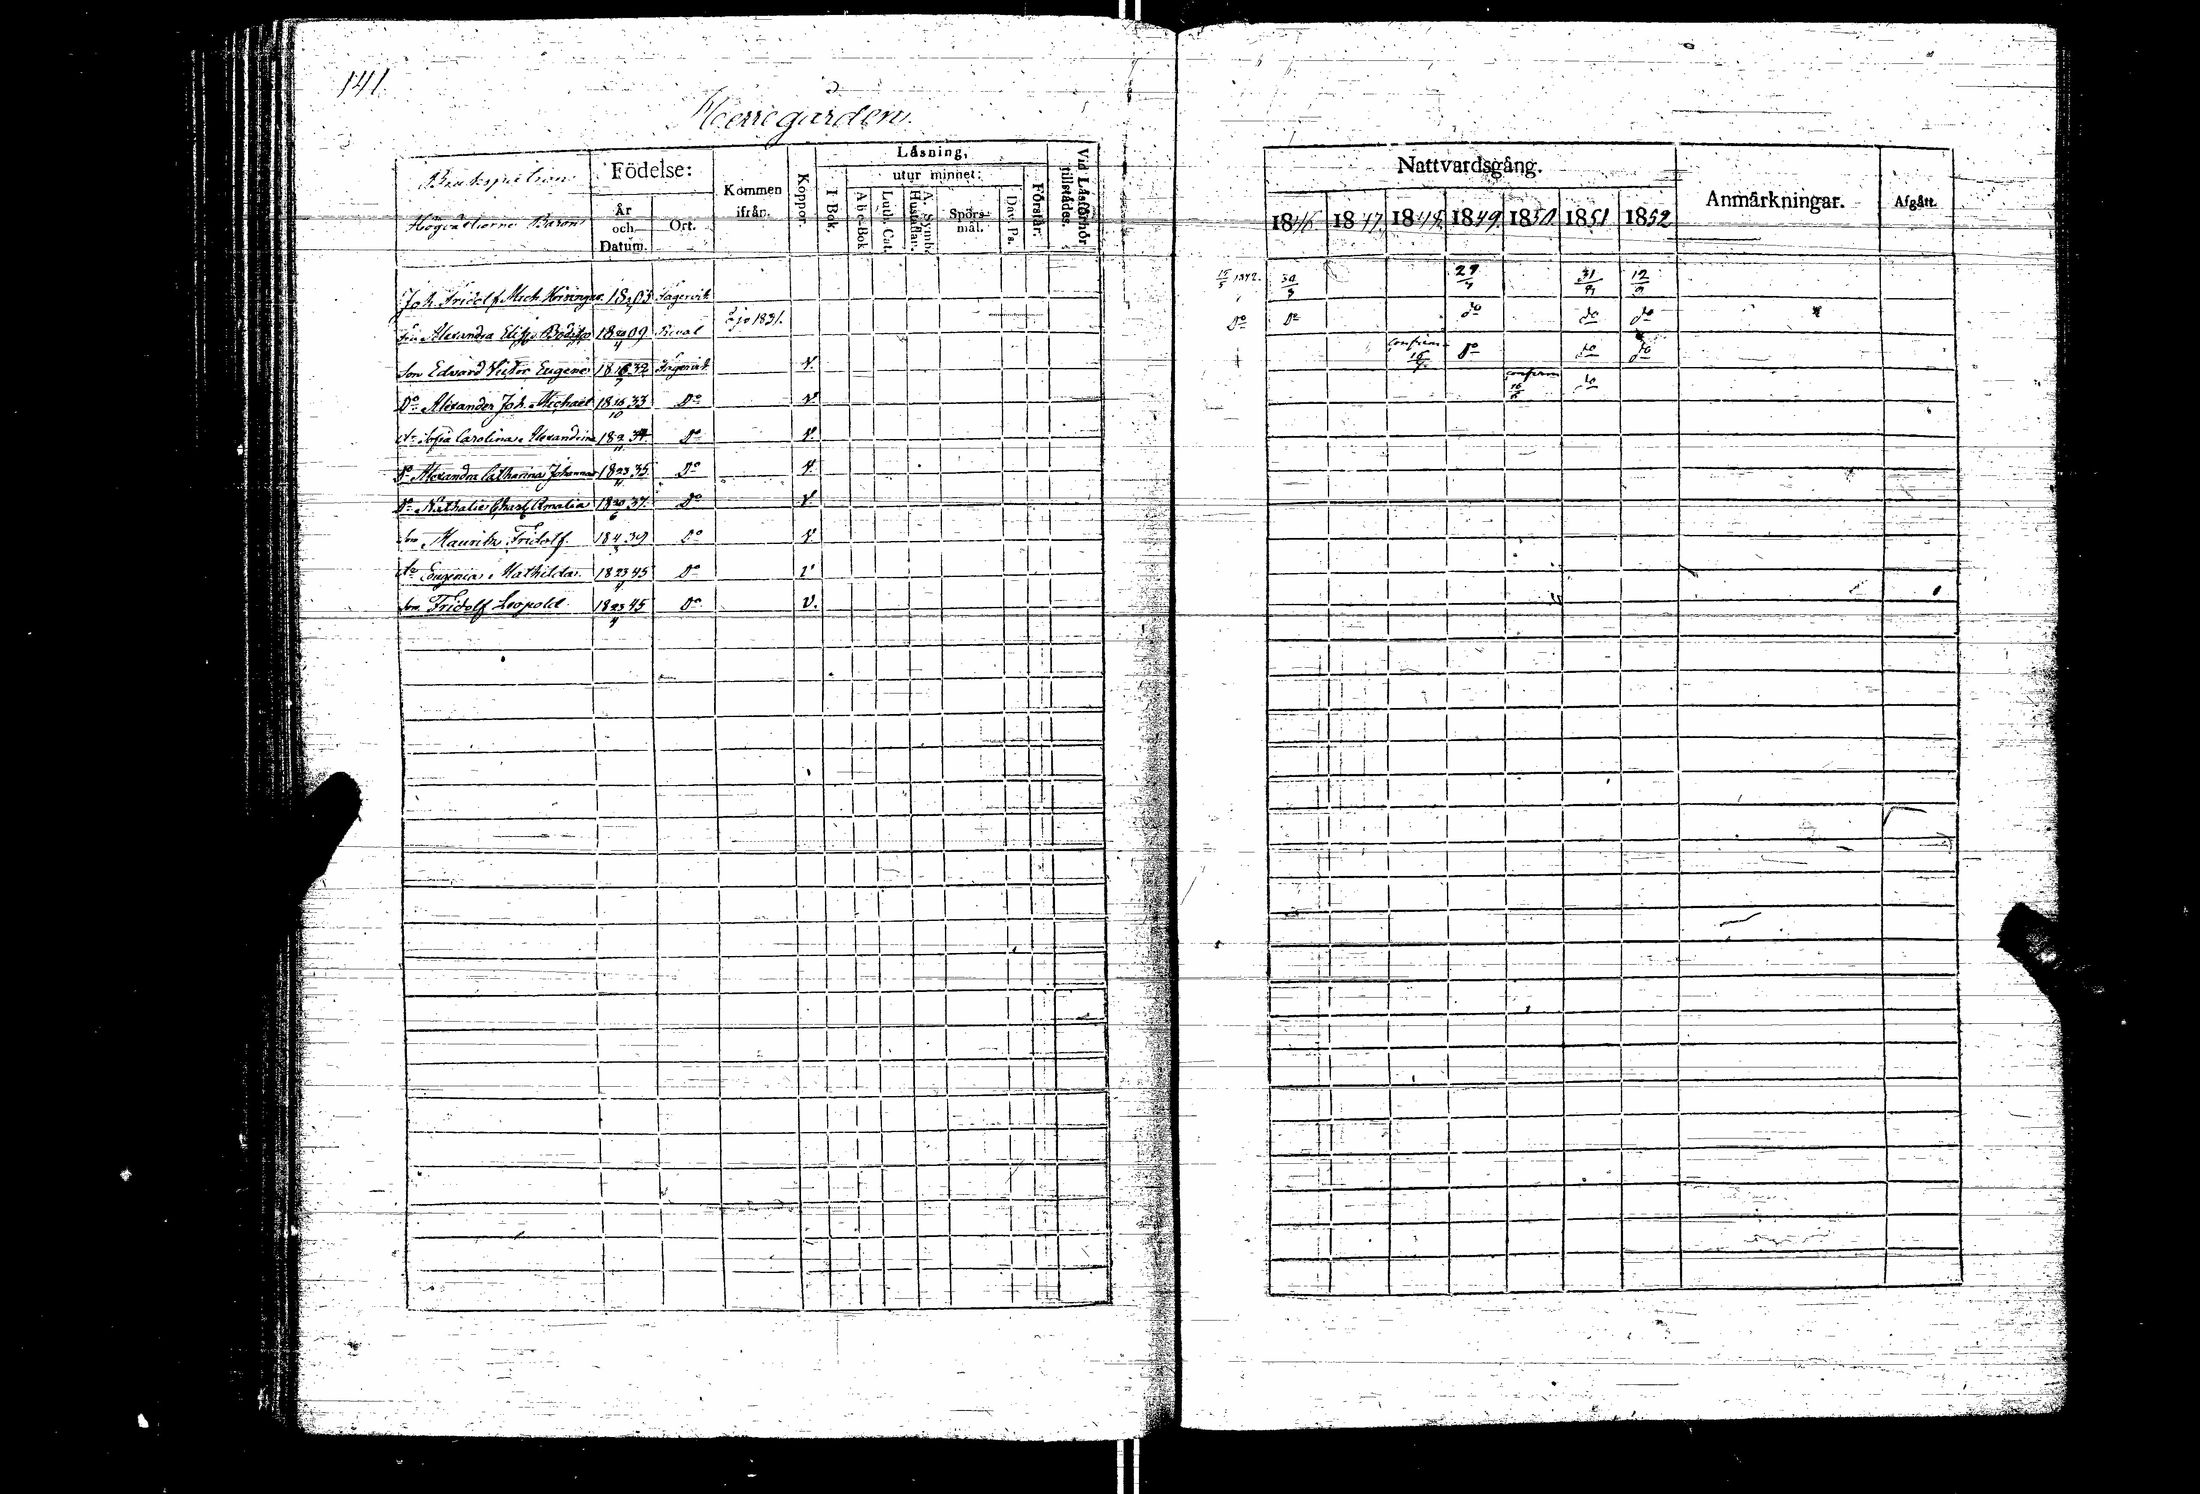 141.
Herregården.
Brukspatron
Högvälborne Baron
Födelse:
År och Datum.
Ort.
Kommen ifrån.
Koppor.
Läsning,
utur minnet:
I Bok.
Abc-Bok
Luth. Cat.
A. Symb. Hustaflan.
Spörs-mål.
Dav. Ps.
Förstår:
Vid Läsförhör tillstädes.
Joh. Fridolf Mich. Hisinger 1803 Fagervik
Fru Alexandra 18 20/4 09 Reval 1831.
Son Edvard Victor Eugene 18 16/7 32 Fagervik V.
Do Alexander Joh. Michael 18 16/10 33 Do V.
do Sofia Carolina Alexandrina 18 2/11 34 Do V.
Do Alexandra Catharina Johanna 18 23/11 35 Do V.
Do Nathalie Charl. Amalia 18 20/6 37 Do V.
Son Mauritz Fridolf. 18 4/3 39 Do V
do Eugenia Mathilda 18 23/4 45 Do V
Son Fridolf Leopold 18 23/4 45 Do V.
Nattvardsgång.
1846 1847. 1848. 1849. 1850. 1851 1852
Anmärkningar.
Afgått.
15/5 1842. 30/8 29/7 31/8 12/9
Do Do do do do
confirm 16/7 Do do do
confirm 16/6 do